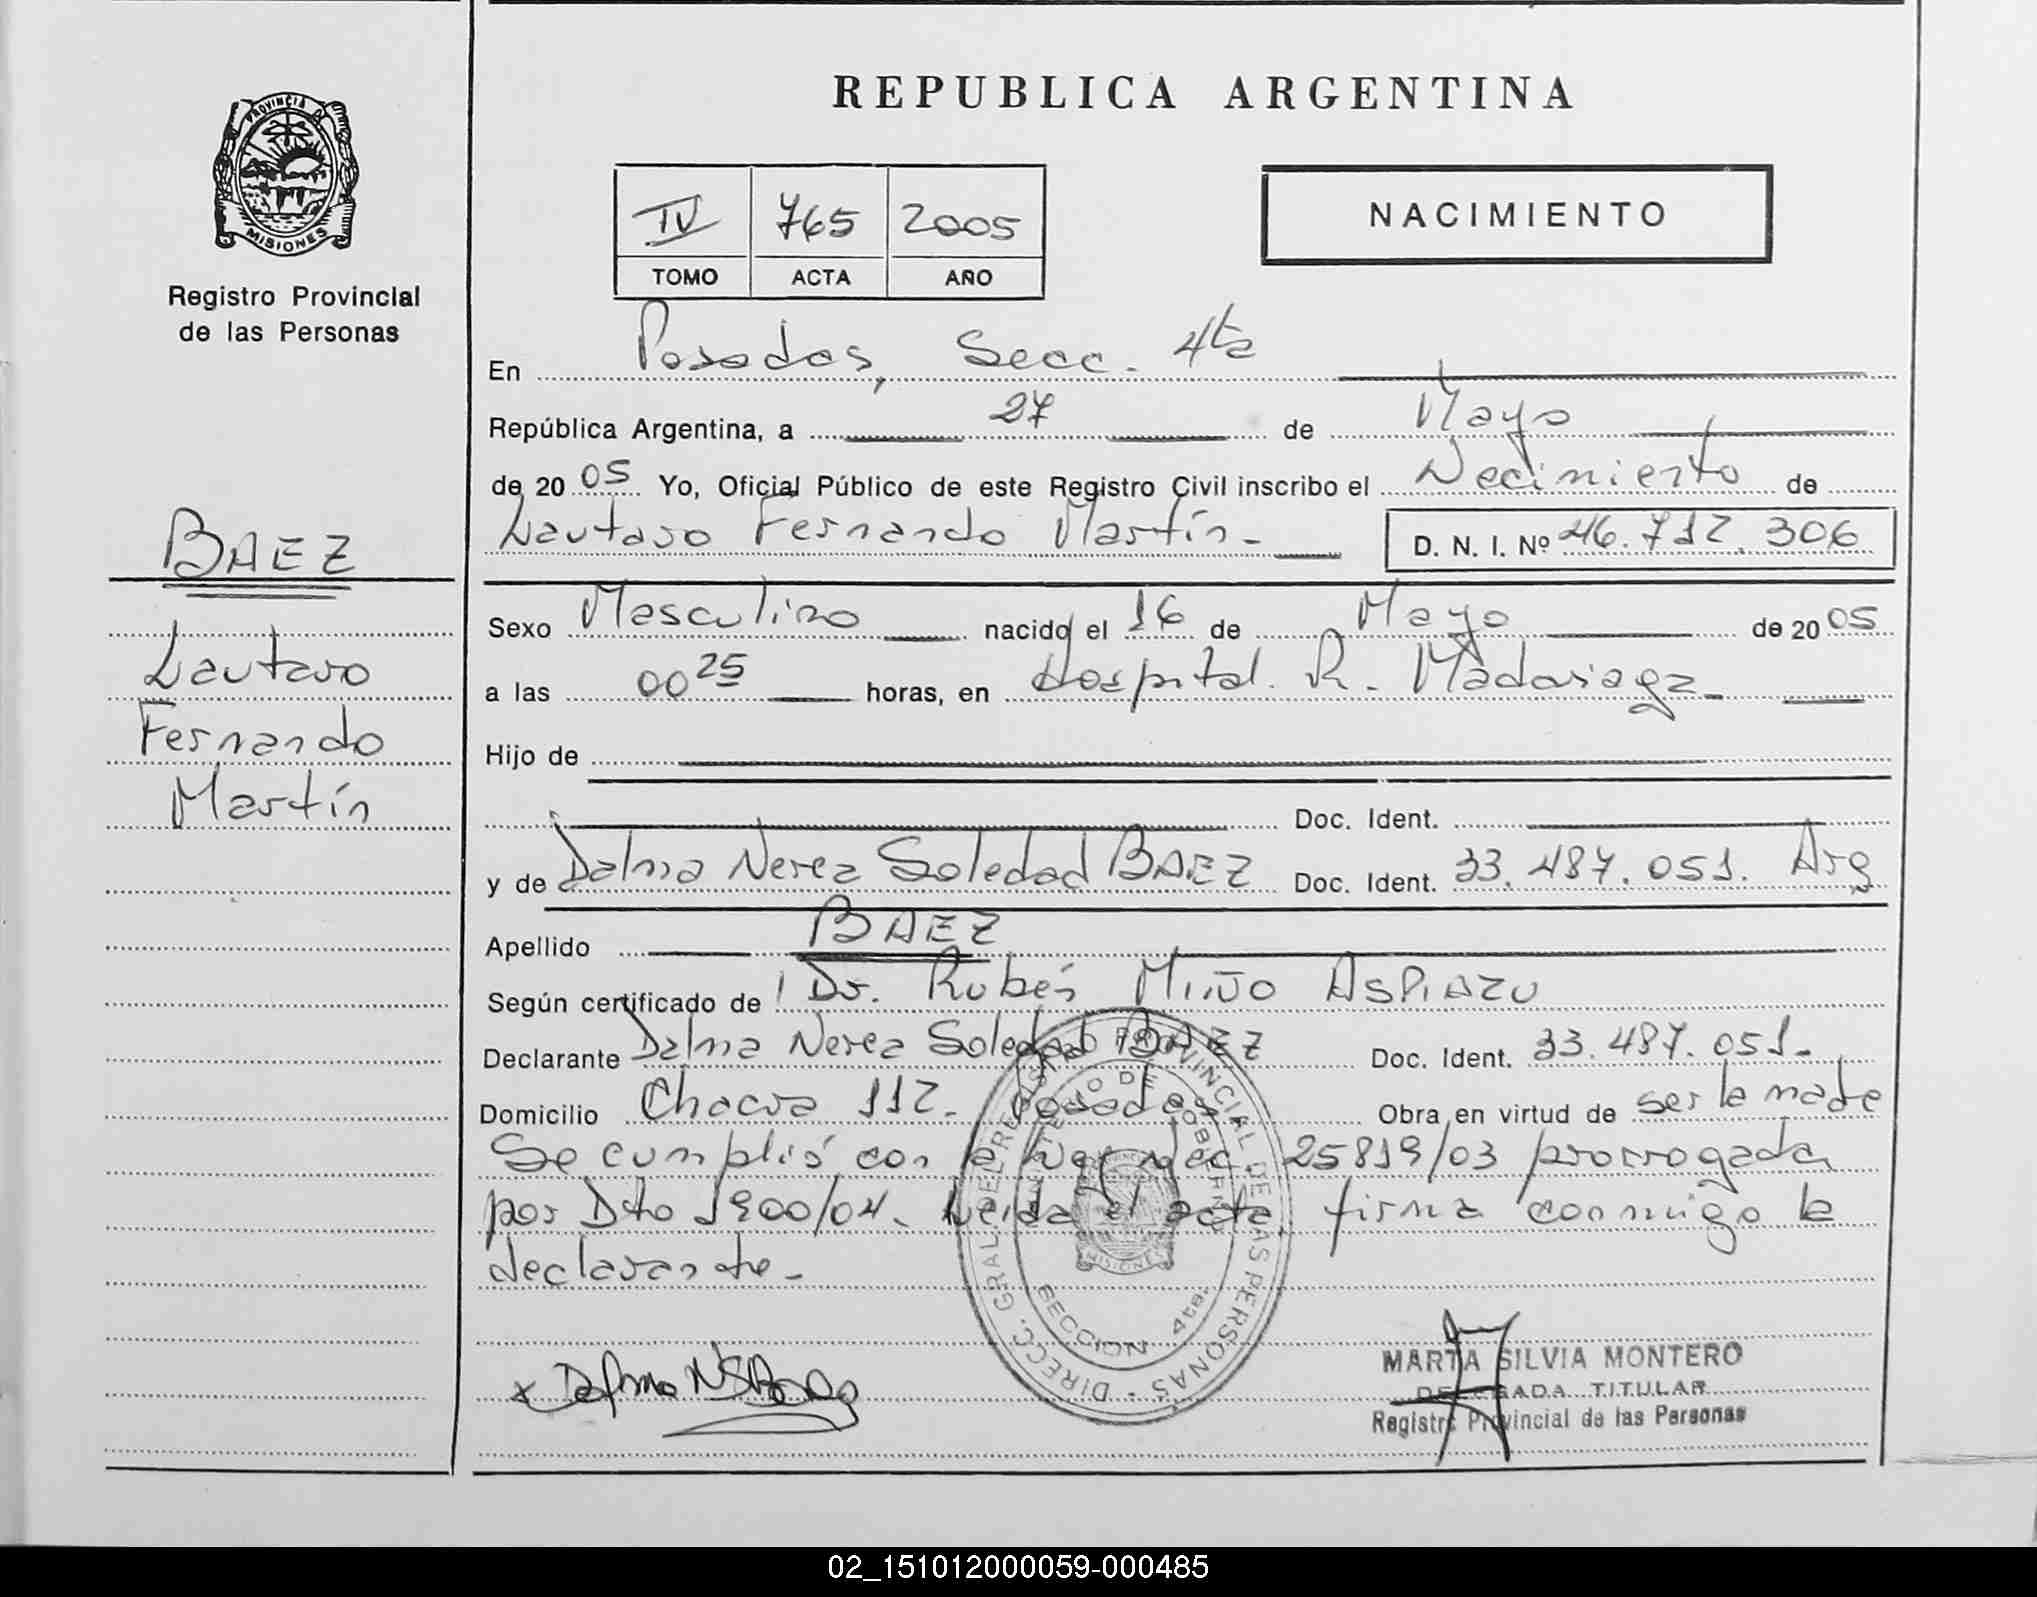 REPUBLICA ARGENTINA
PROVINCIA DE MISIONES
Registro Provincial
de las Personas
IV 765 2005
TOMO ACTA AÑO
NACIMIENTO
En Posadas, Secc. 4ta
República Argentina, a 27 de Mayo
de 2005 Yo, Oficial Público de este Registro Civil inscribo el Nacimiento de
Lautaro Fernando Martín - D. N. I. Nº 46.712.306
BAEZ
Lautaro
Fernando
Martín
Sexo Masculino nacido el 16 de Mayo de 2005
a las 00 25 horas, en Hospital. R. Madariaga -
Hijo de
Doc. Ident.
y de Dalma Nerea Soledad BAEZ Doc. Ident. 33.487.051. Arg
Apellido BAEZ
Según certificado de Dr. Rubén MIÑO ASPIAZU
Declarante Dalma Nerea Soledad BAEZ Doc. Ident. 33.487.051.-
Domicilio Chacra 112. Posadas Obra en virtud de ser la madre
Se cumplió con la Ley Nac. 25819/03 prorrogada
por Dto 1900/04. Leida el acta, firma conmigo la
declarante -
DIRECC. GRAL. DEL REGISTRO PROVINCIAL DE LAS PERSONAS
MINISTERIO DE GOBIERNO
MISIONES
SECCION 4ta.
x Dalma N S Baez
MARTA SILVIA MONTERO
DELEGADA TITULAR
Registro Provincial de las Personas
02_151012000059-000485